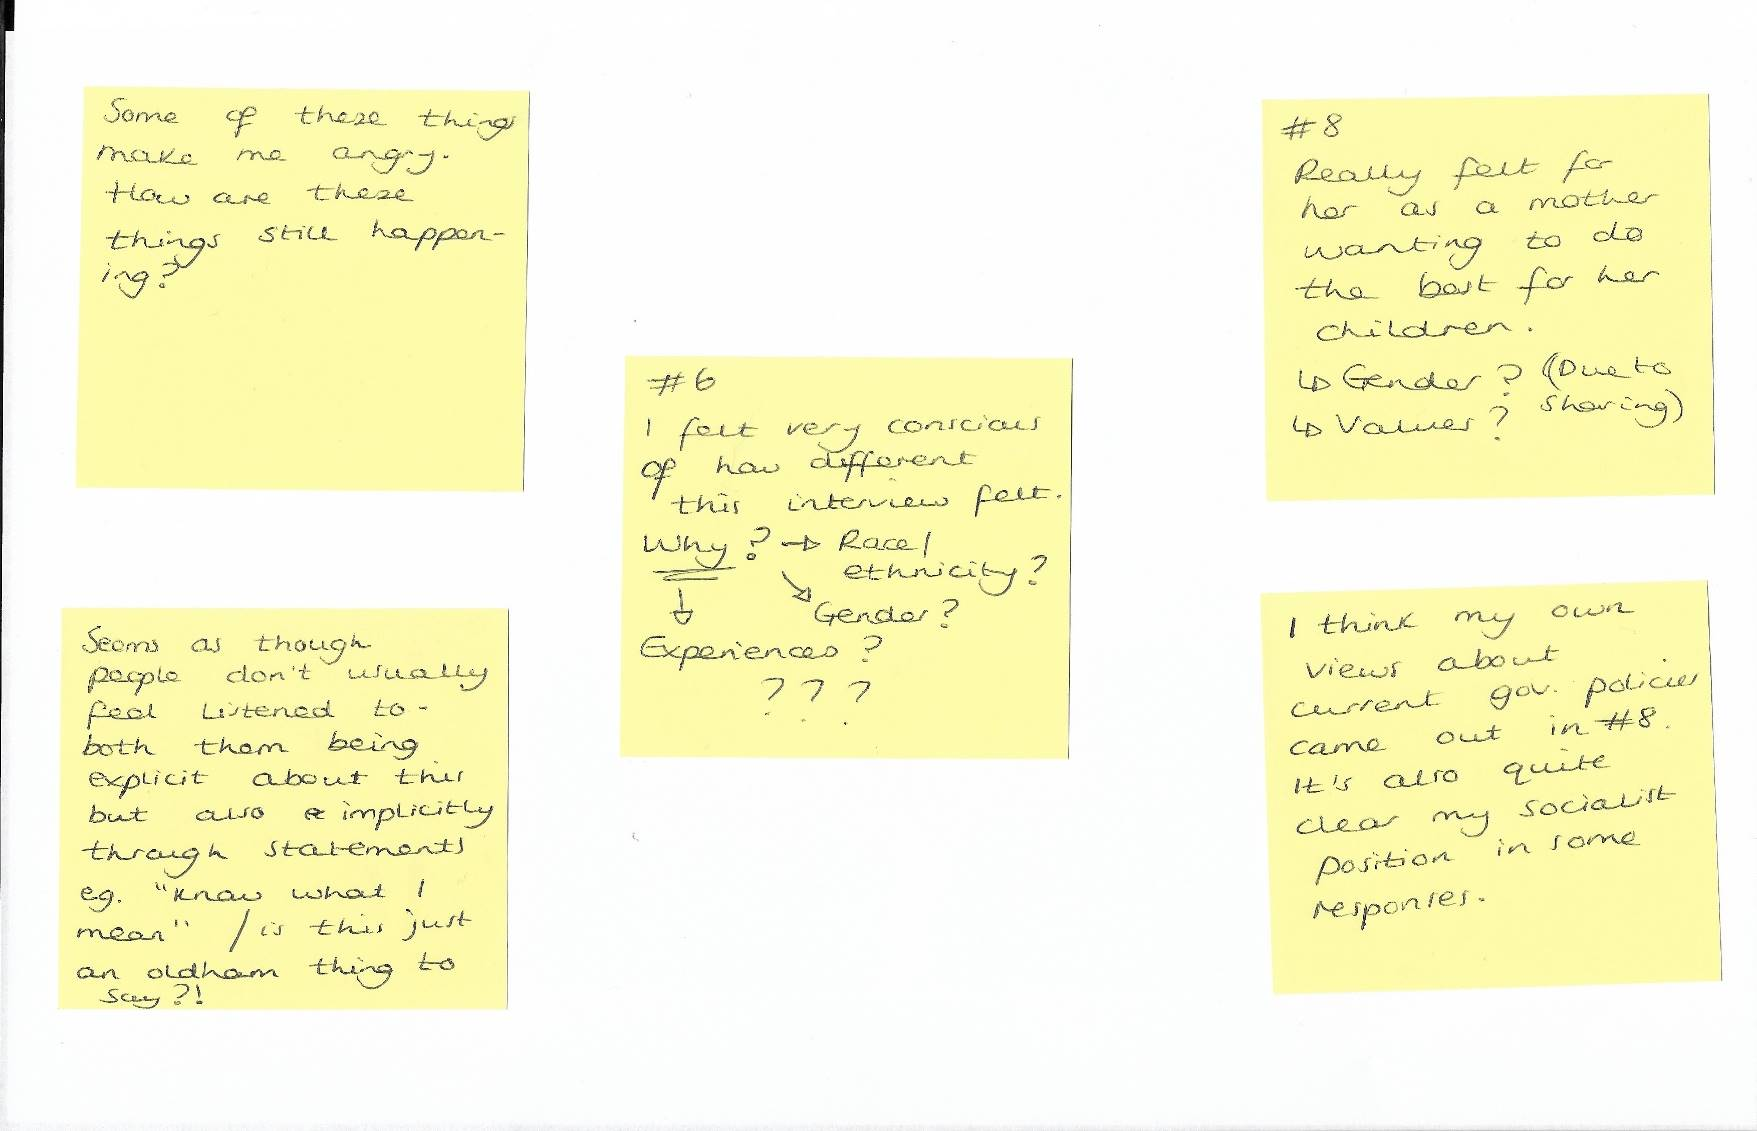 Some of these things
make me angry.
How are these
things still happen-
ing?
Seems as though
people don't usually
feel listened to -
both them being
explicit about this
but also implicitly
through statements
eg. "know what I
mean" / is this just
an oldham thing to
say?!
#6
I felt very conscious
of how different
this interview felt.
Why? → Race/
ethnicity?
↘ Gender?
↓
Experiences?
? ? ?
#8
Really felt for
her as a mother
wanting to do
the best for her
children.
↳ Gender? (Due to
↳ Values? sharing)
I think my own
views about
current gov. policies
came out in #8.
It's also quite
clear my socialist
position in some
responses.